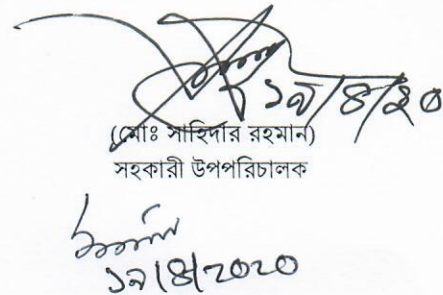 ১৯/৪/২০
(মোঃ সাহির্দার রহমান)
সহকারী উপপরিচালক
১৯/৪/২০২০